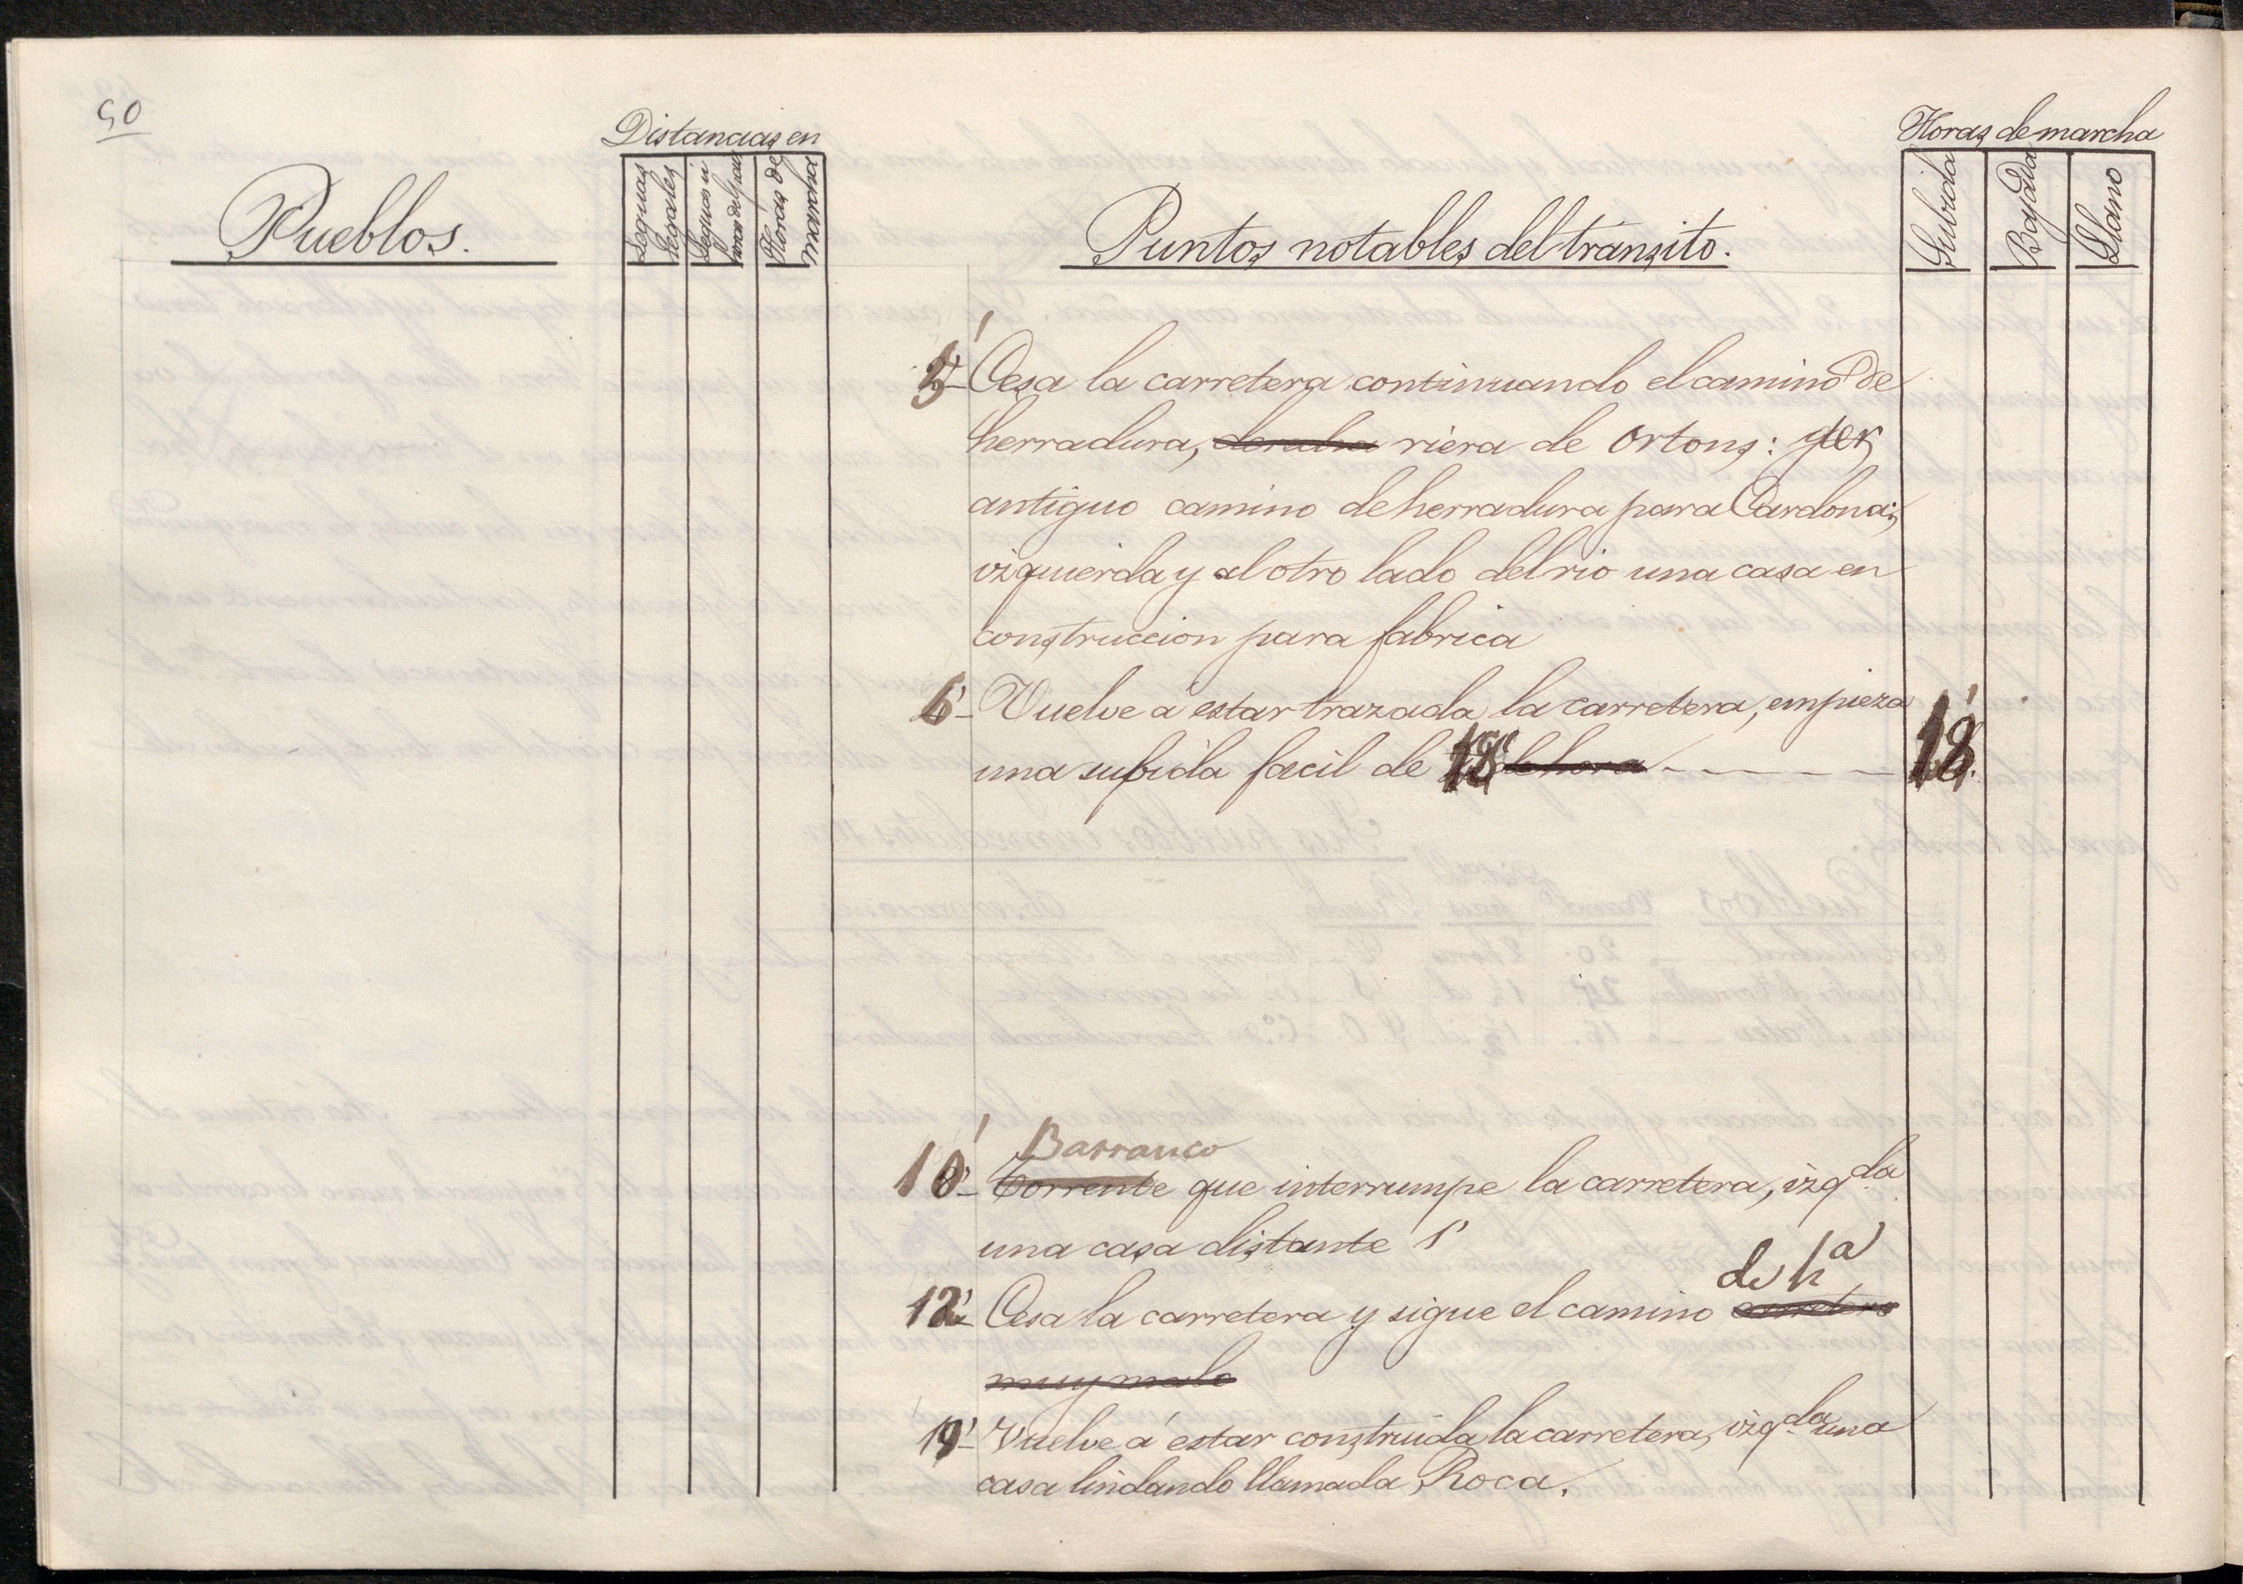 50
Distancias en
Horas de marcha
Pueblos.
Leguas legales
Leguas
Horas de marcha
Puntos notables del tránsito.
Subida
Bajada
Llano
5'- Cesa la carretera continuando el camino de
herradura, derecha riera de Ortons:
antiguo camino de herradura para Cardona;
izquierda y al otro lado del rio una casa en
construccion para fabrica
6'- Vuelve á estar trazada la carretera, empieza
una subida facil de 18' de hora - - - - - 18'
Barranco
10'- Torrente que interrumpe la carretera, izqda
una casa distante 1'
de ha
12'- Cesa la carretera y sigue el camino carretero
muy malo
19'- Vuelve á estar construida la carretera, izqda una
casa lindando llamada Roca.